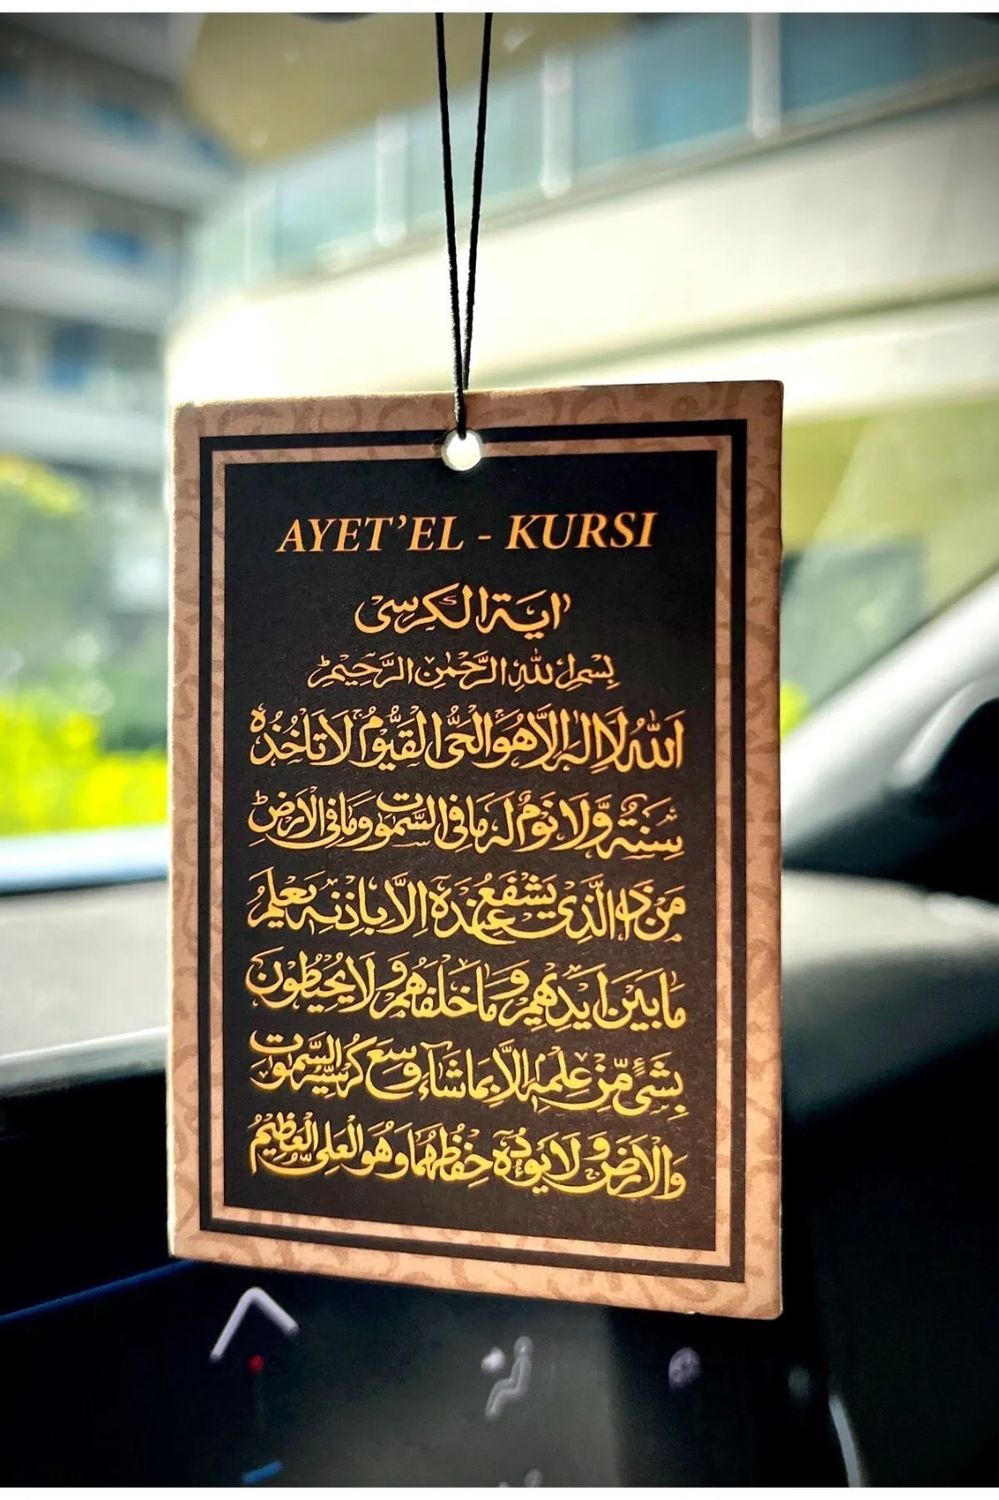 AYET'EL - KURSI
اٰية الكرسى
بِسْمِ اللهِ الرَّحْمٰنِ الرَّحِيمِ
اَللهُ لَا اِلٰهَ اِلَّا هُوَ الْحَىُّ الْقَيُّومُ لَا تَأْخُذُهُ
سِنَةٌ وَلَا نَوْمٌ لَهُ مَا فِى السَّمٰوَاتِ وَمَا فِى الْاَرْضِ
مَنْ ذَا الَّذِى يَشْفَعُ عِنْدَهُ اِلَّا بِاِذْنِهِ يَعْلَمُ
مَا بَيْنَ اَيْدِيهِمْ وَمَا خَلْفَهُمْ وَلَا يُحِيطُونَ
بِشَىْءٍ مِنْ عِلْمِهِ اِلَّا بِمَا شَاءَ وَسِعَ كُرْسِيُّهُ السَّمٰوَاتِ
وَالْاَرْضَ وَلَا يَؤُدُهُ حِفْظُهُمَا وَهُوَ الْعَلِىُّ الْعَظِيمُ